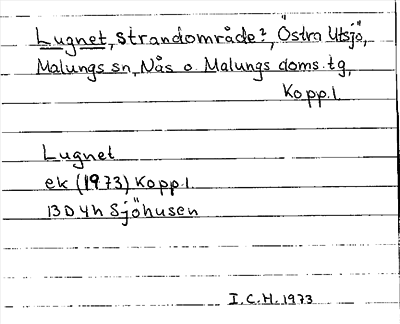 Lugnet, strandområde?, Östra Utsjö,
Malungs sn, Nås o Malungs doms.tg,
Kopp.l.
Lugnet
ek (1973) Kopp.l.
13D4h Sjöhusen
I.C.H. 1973